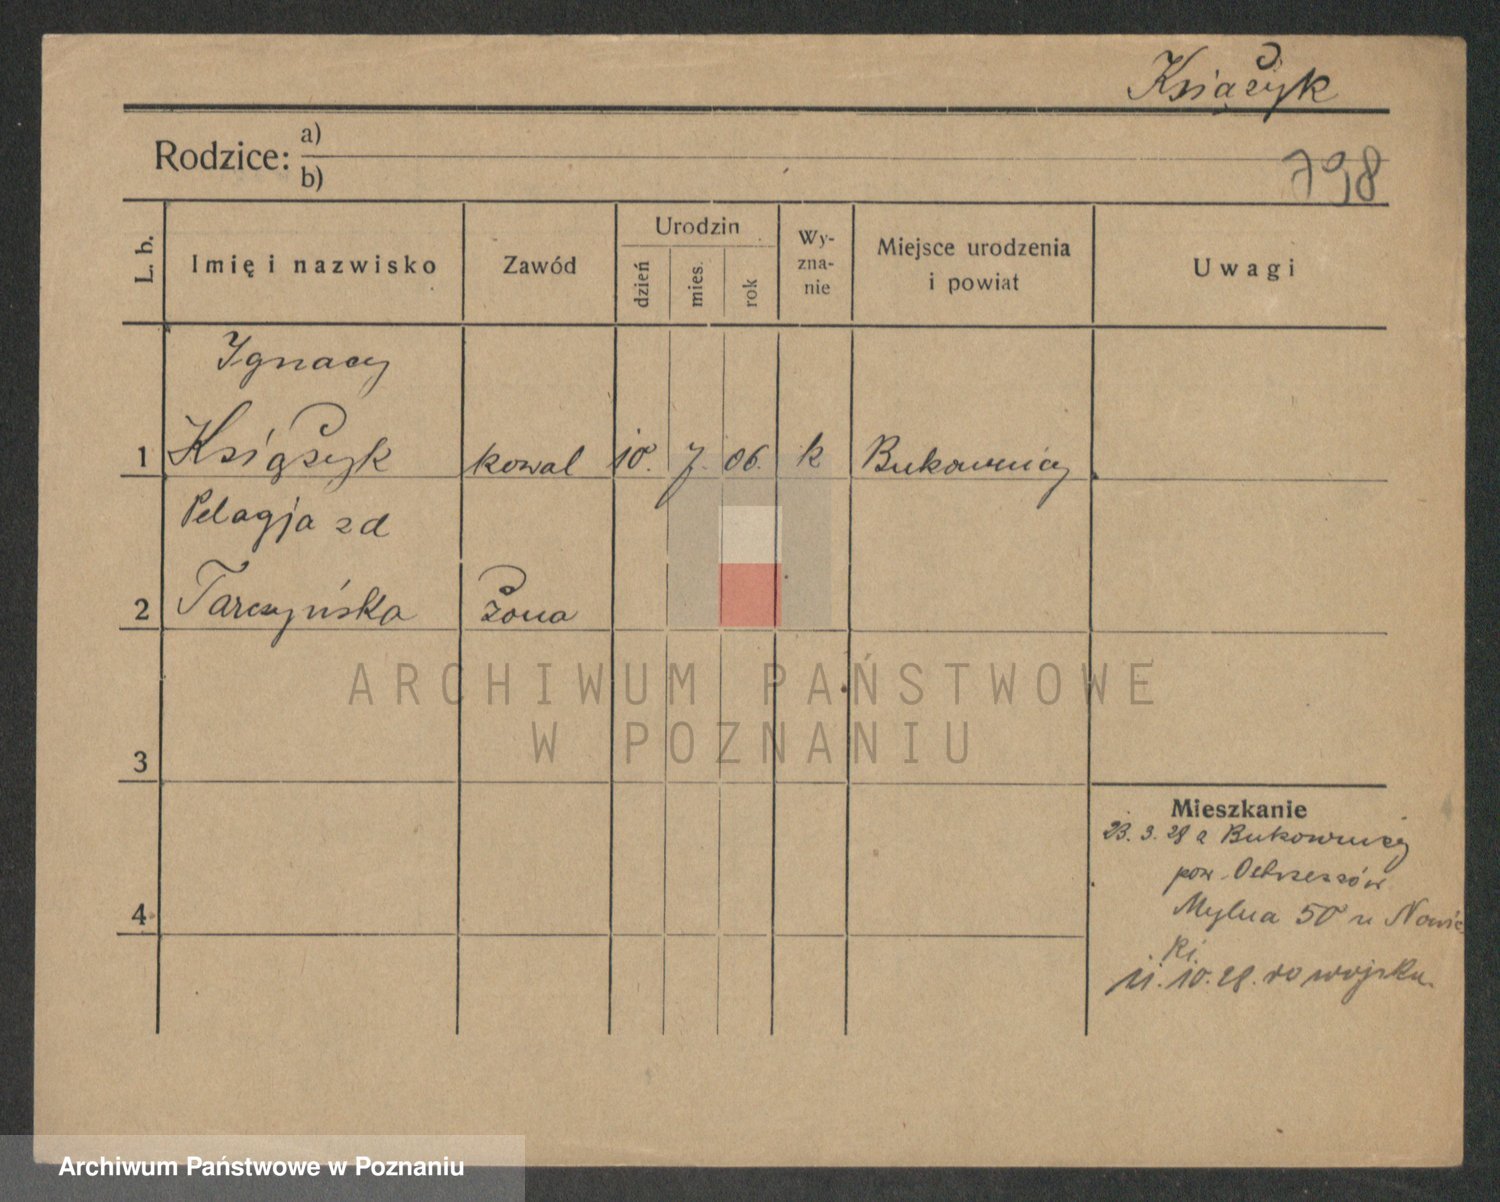 Książyk
798
Rodzice: a)
b)
L. b.
Imię i nazwisko
Zawód
Urodzin
dzień
mies.
rok
Wy-
zna-
nie
Miejsce urodzenia
i powiat
Uwagi
Ignacy
1 Książyk kowal 10. 7. 06. k Bukownicy
Pelagja zd
2 Tarczyńska żona
3
4
Mieszkanie
23. 3. 28 z Bukownicy
pow. Ostrzeszów
Mylna 50 u Nowic-
ki
11. 10. 28. do wojska.
ARCHIWUM PAŃSTWOWE
W POZNANIU
Archiwum Państwowe w Poznaniu